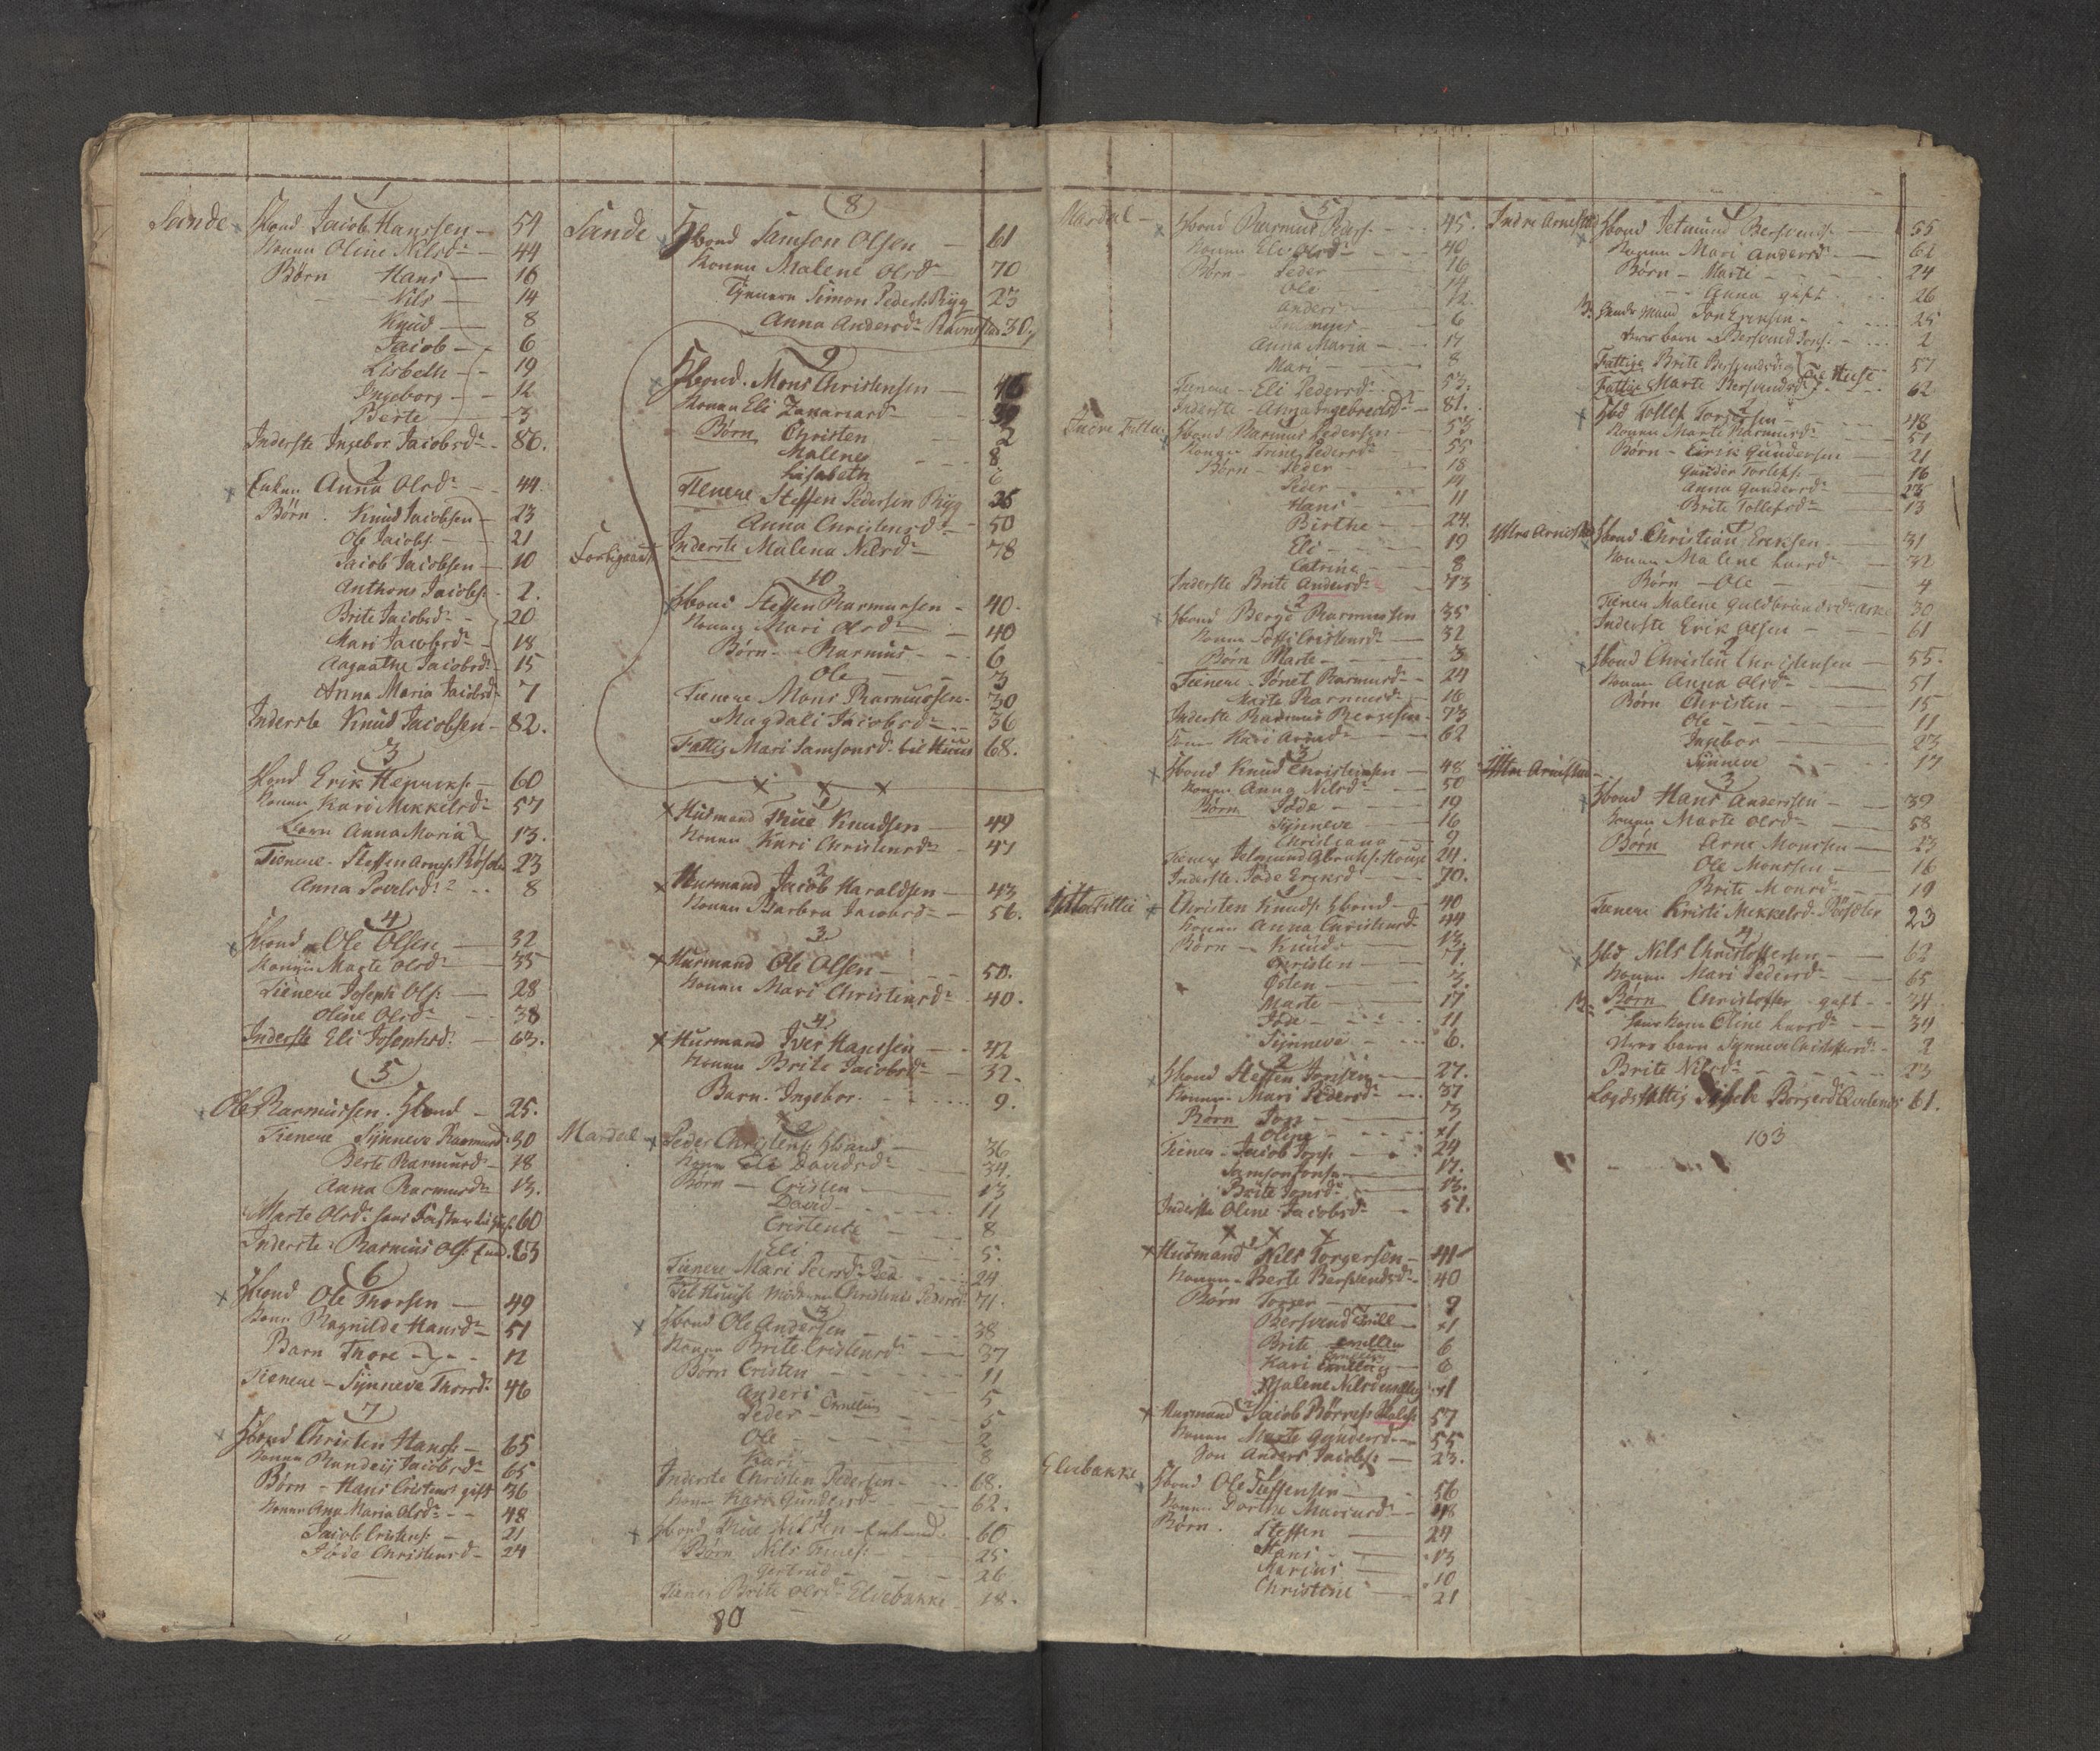 1
Sande Hbond Jacob Hanssen 54
Konen Oline Nilsd 44
Børn Hans 16
Nils 14
Knud 8
Jacob 6
Lisbeth 19
Ingeborg 12
Berte 3
Inderste Ingebor Jacobsd 86.
2
Enken Anna Olsd 44
Børn Knud Jacobsen 23
Ole Jacobs. 21
Jacob Jacobsen 10
Anthons Jacobs. 2.
Brite Jacobsd 20
Mari Jacobsd 18
Aagaathe Jacobsd 15
Anna Maria Jacobsd 7
Inderste Knud Jacobsen 82.
3
Hbond Erik Henriks. 60
Konen Kari Mikkelsd 57
Barn Anna Maria 13.
Tienere Steffen Arnes. 23
Anna Povelsd 8
4
Hbond Ole Olsen 32
Konen Marte Olsd 35
Tienere Joseph Ols. 28
Oline Olsd 38
Inderste Eli Josephsd 63.
5
Ole Rasmussen Hbond 25.
Tienere Synneve Rasmusd 30
Berte Rasmusd 18
Anna Rasmusd 13.
Marte Olsd hans 60
Inderste Rasmus Ols. 63
6
Hbond Ole Thorsen 49
Kone Ragnilde Hansd 51
Barn Thore 12
Tienere Synneve Thorsd 46
7
Hbond Christen Hanss. 65
Konen Randeij Jacobsd 65
Børn Hans Cristens. gift 36
Konen Ane Maria Olsd 48
Jacob Cristens. 21
Jøde Christensd 24
8
Sande Hbond Samson Olsen 61
Konen Malene Olsd 70
Tjenere Simon Peders. Ryg 23
Anna Andersd 30
9
Hbond Mons Christensen 46
Konen Eli Zakariasd 39
Børn Christen 2
Malene 8
Lisabeth 6
Tienere Steffen Pedersen Ryg 26
Anna Christensd 50
Inderste Malena Nilsd 78
10
Hbond Steffen Rasmussen 40
Konen Mari Olsd 40
Børn Rasmus 6
Ole 3
Tienere Mons Rasmussen 30
Magdali Jacobsd 36
Fattig Mari Samsonsd til Huus 68.
x x x
1
Husmand Knudsen 49
Konen Kari Christensd 47
2
Husmand Jacob Haraldsen 43
Konen Barbra Jacobsd 56.
3
Husmand Ole Olsen 50.
Konen Mari Christensd 40.
4
Husmand Iver Hanssen 42
Konen Brite Jacobsd 32
Barn Ingebor 9.
Mardal Peder Christens. Hbond 36
Kone Eli Davidsd 34.
Børn Cristen 13
David 11
Cristense 8
Eli 5.
Tienere Mari Peersd 24
Til Huuse Moderen Christense Pedersd 71.
3
Hbond Ole Andersen 38
Konen Brite Cristensd 37
Børn Cristen 11
Anders 5
Peder 5
Ole 2
Kari 8
Inderste Christen Pedersen 68.
Kone Kari Gundersd 62.
4
Hbond Nilsen 60
Børn Nils 25
Gertrud 26
Tiener Brite Olsd Elvebakke 18.
80
5
Mardal Hbond Rasmus Rass. 45.
Konen Eli Olsd 40
Børn Peder 16
Ole 14
Anders 12.
6
Anna Maria 17
Mari 8
Tienere Eli Pedersd 53.
Inderste Anna Ingebretsd 81.
Indre Hbond Rasmus Pedersen 53
Konen Trine Pedersd 55
Børn Peder 18
Peder 14
Hans 11
Birthe 24.
Eli 19
Catrine 8
Inderste Brite Andersd 73
2
Hbond Berge Rasmussen 35
Konen Cristensd 32
Børn Marte 3
Tienere Jonet Rasmusd 24
Marte Rasmusd 16
Inderste Rasmus Bergesen 73
Konen Kari 62
3
Hbond Knud Christensen 48
Konen Anna Nilsd 50
Børn Jøde 19
Synneve 16
Christiana 9
Tienere Jetmund 24.
Inderste Jøde Eriksd 70.
1
Christen Knuds. Hbond 40
Konen Anna Christensd 44
Børn Knud 13.
Christen 7.
Østen 3.
Marte 17
Jøde 11
Synneve 6.
2
Hbond Steffen Jonsen 27.
Konen Mari Pedersd 37
Børn Jon 3
Oline
Tienere Jacob Jons. 24
Samson Jonsen 17.
Brite Jonsd 13.
Inderste Oline Jacobsd 51.
x x x
Husmand Nils Torgersen 41
Konen Berte Bersvendsd 40
Børn Torger 9
Bersvend
Brite 6
Kari 6
Malene
2
Husmand Jacob Børres. 57
Konen Marte Gundersd 55
Søn Anders Jacobs. 23.
Elvebakke Hbond Ole Steffensen 56
Konen Dorthe 48
Børn Steffen 24
Hans 13
Marius 10
Christene 21
1
Indre Hbond Jetmund Bersvends. 55
Konen Mari Andersd 62
Børn Marte 24
Anna gift 26
Hendes Mand Jon Eriksen 25
deres barn Bersvend Jons. 2
Fattige Brite Bersvendsd til Huse 57
Fattig Marte Bersvendsd 62
2
Hbd Tollef Torgersen 48
Konen Marte Rasmusd 51
Børn Erik Gundersen 21
Gunder Tollefs. 16
Anna Gundersd 23
Brite Tollefsd 13
1
Hbond Christian Eriksen 31
Konen Malene 32
Børn Ole 4
Tiener Malene Guldbrandsd 30
Inderste Erik Olsen 61
2
Hbond Christen Christensen 55.
Konen Anna Olsd 51
Børn Christen 15
Ole 11
Ingebor 23
Synneve 17
3
Hbond Hans Anderssen 39
Konen Marte Olsd 58
Børn Arne Monssen 23
Ole Monssen 16
Brite Monsd 19
Tienere Kristi Mekkelsd 23
4
Hbd Nils Christoffersen 62
Konen Mari Pedersd 65
Børn Christoffer gift 34
hans Kone Oline 34
deres barn Synneve Christoffersd 2
Brite Nilsd 23
Lægds Fattig 61.
103